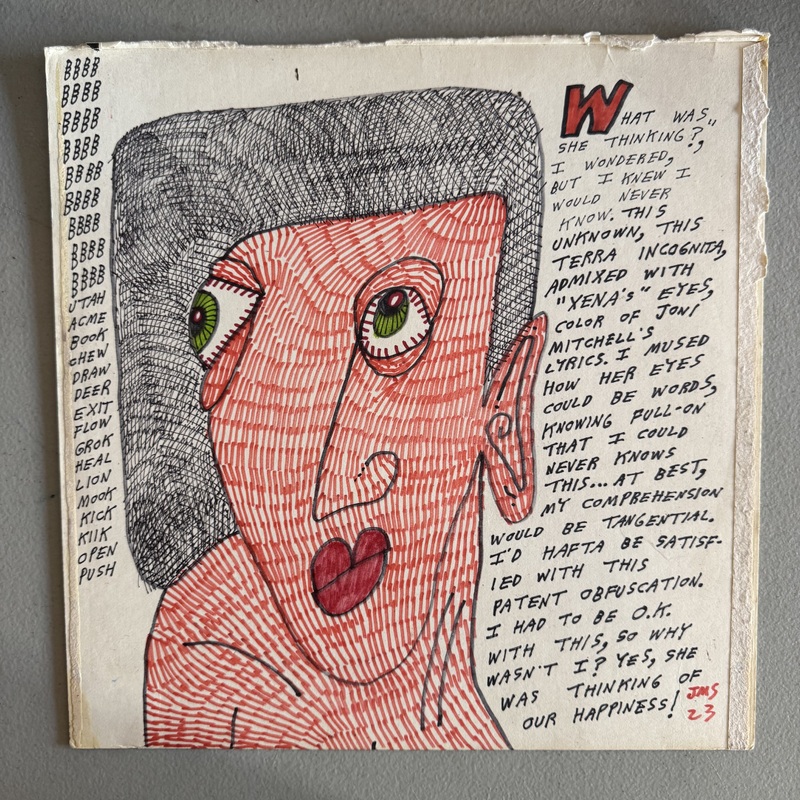 BBBB
BBBB
BBBB
BBBB
BBBB
BBBB
BBBB
BBBB
BBBB
UTAH
ACME
BOOK
CHEW
DRAW
DEER
EXIT
FLOW
GROK
HEAL
LION
MOOK
KICK
KIIK
OPEN
PUSH
WHAT WAS,,
SHE THINKING?,
I WONDERED,
BUT I KNEW I
WOULD NEVER
KNOW. THIS
UNKNOWN, THIS
TERRA INCOGNITA,
ADMIXED WITH
"XENA'S" EYES,
COLOR OF JONI
MITCHELL'S
LYRICS. I MUSED
HOW HER EYES
COULD BE WORDS,
KNOWING FULL-ON
THAT I COULD
NEVER KNOWS
THIS... AT BEST,
MY COMPREHENSION
WOULD BE TANGENTIAL.
I'D HAFTA BE SATISF-
IED WITH THIS
PATENT OBFUSCATION.
I HAD TO BE O.K.
WITH THIS, SO WHY
WASN'T I? YES, SHE
WAS THINKING OF
OUR HAPPINESS!
JMS
23